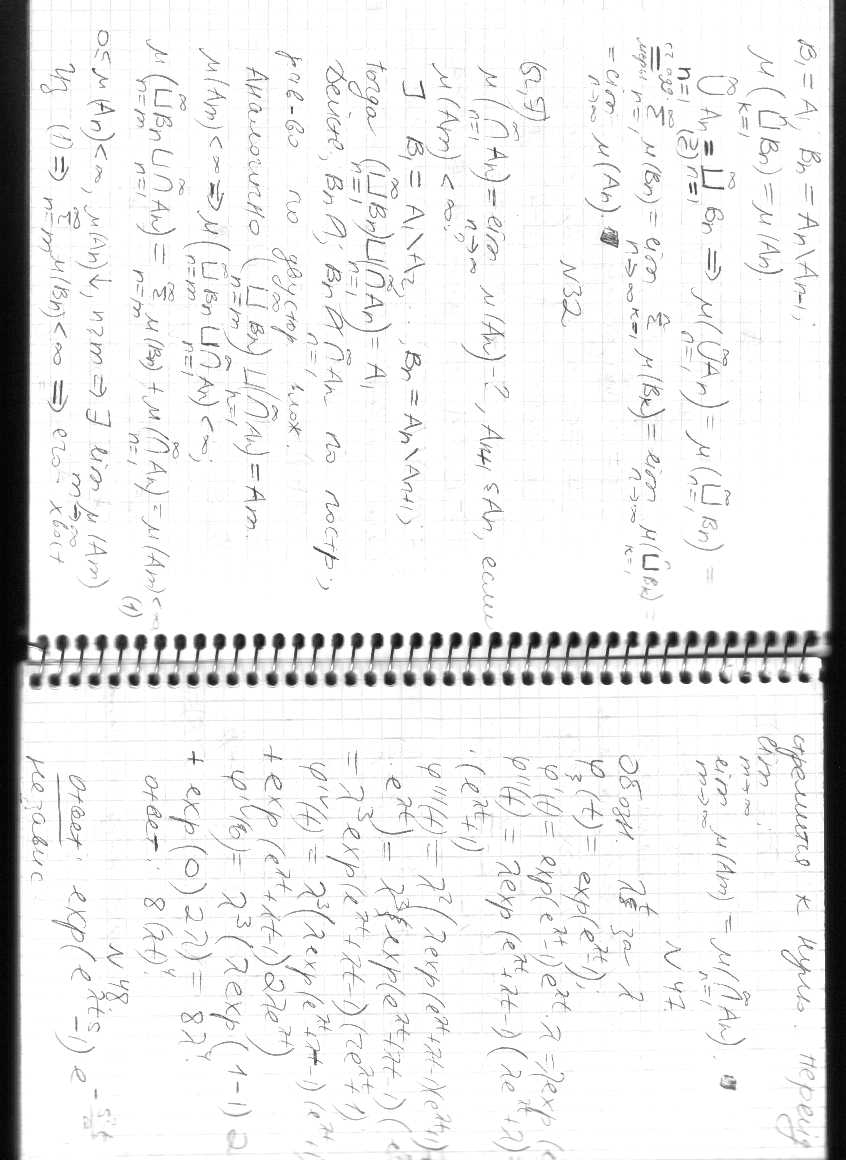 B₁ = A₁; Bₙ = Aₙ\Aₙ₋₁;
μ(⨆ₖ₌₁ⁿ Bₙ) = μ(Aₙ)
⋃ₙ₌₁^∞ Aₙ = (2) ⨆ₙ₌₁^∞ Bₙ ⇒ μ(⋃ₙ₌₁^∞ Aₙ) = μ(⨆ₙ₌₁^∞ Bₙ) =
= ∑ₙ₌₁^∞ μ(Bₙ) = lim_{n→∞} ∑ₖ₌₁ⁿ μ(Bₖ) = lim_{n→∞} μ(⨆ₖ₌₁ⁿ Bₖ) =
= lim_{n→∞} μ(Aₙ). ∎
N32
(Ω, F)
μ(⋂ₙ₌₁^∞ Aₙ) = lim_{n→∞} μ(Aₙ) - ?, Aₙ₊₁ ⊆ Aₙ, если
μ(Aₘ) < ∞?
] B₁ = A₁\A₂, ..., Bₙ = Aₙ\Aₙ₊₁;
тогда (⨆ₙ₌₁^∞ Bₙ)⊔(⋂ₙ₌₁^∞ Aₙ) = A₁
рав-во по двустор. влож.
Аналогично (⨆ₙ₌ₘ^∞ Bₙ) ⊔ (⋂ₙ₌₁^∞ Aₙ) = Aₘ.
μ(Aₘ) < ∞ ⇒ μ(⨆ₙ₌ₘ^∞ Bₙ ⊔ ⋂ₙ₌₁^∞ Aₙ) < ∞;
μ(⨆ₙ₌ₘ^∞ Bₙ ⊔ ⋂ₙ₌₁^∞ Aₙ) = ∑ₙ₌ₘ^∞ μ(Bₙ) + μ(⋂ₙ₌₁^∞ Aₙ) = μ(Aₘ) < ∞ (1)
0 ≤ μ(Aₙ) < ∞, μ(Aₙ)↓, n ≥ m ⇒ ∃ lim_{m→∞} μ(Aₘ)
Из (1) ⇒ ∑ₙ₌ₘ^∞ μ(Bₙ) < ∞ ⇒ его хвост
стремится к нулю. Перейд
lim_{m→∞}:
lim_{m→∞} μ(Aₘ) = μ(⋂ₙ₌₁^∞ Aₙ). ∎
N 47
Обозн. λt за λ
φ_ξ(t) = exp(e^{λt}-1);
φ'(t) = exp(e^{λt}-1) e^{λt} λ = λexp(e
φ''(t) = λexp(e^{λt}+λt-1)(λe^{λt}+λ) =
·(e^{λt}+1)
φ'''(t) = λ²(λexp(e^{λt}+λt-1)(e^{λt}+1)
·e^{λt}) = λ³(exp(e^{λt}+λt-1)(
= λ³exp(e^{λt}+λt-1)(2e^{λt}+1)
φ^{IV}(t) = λ³(λexp(e^{λt}+λt-1)(e^{λt}+1
+ exp(e^{λt}+λt-1) 2λe^{λt})
φ^{IV}(0) = λ³(λexp(1-1)2
+ exp(0)2λ) = 8λ⁴.
ответ: 8(λt)⁴.
N 48.
ответ: exp(e^{λts}-1) e
независ.